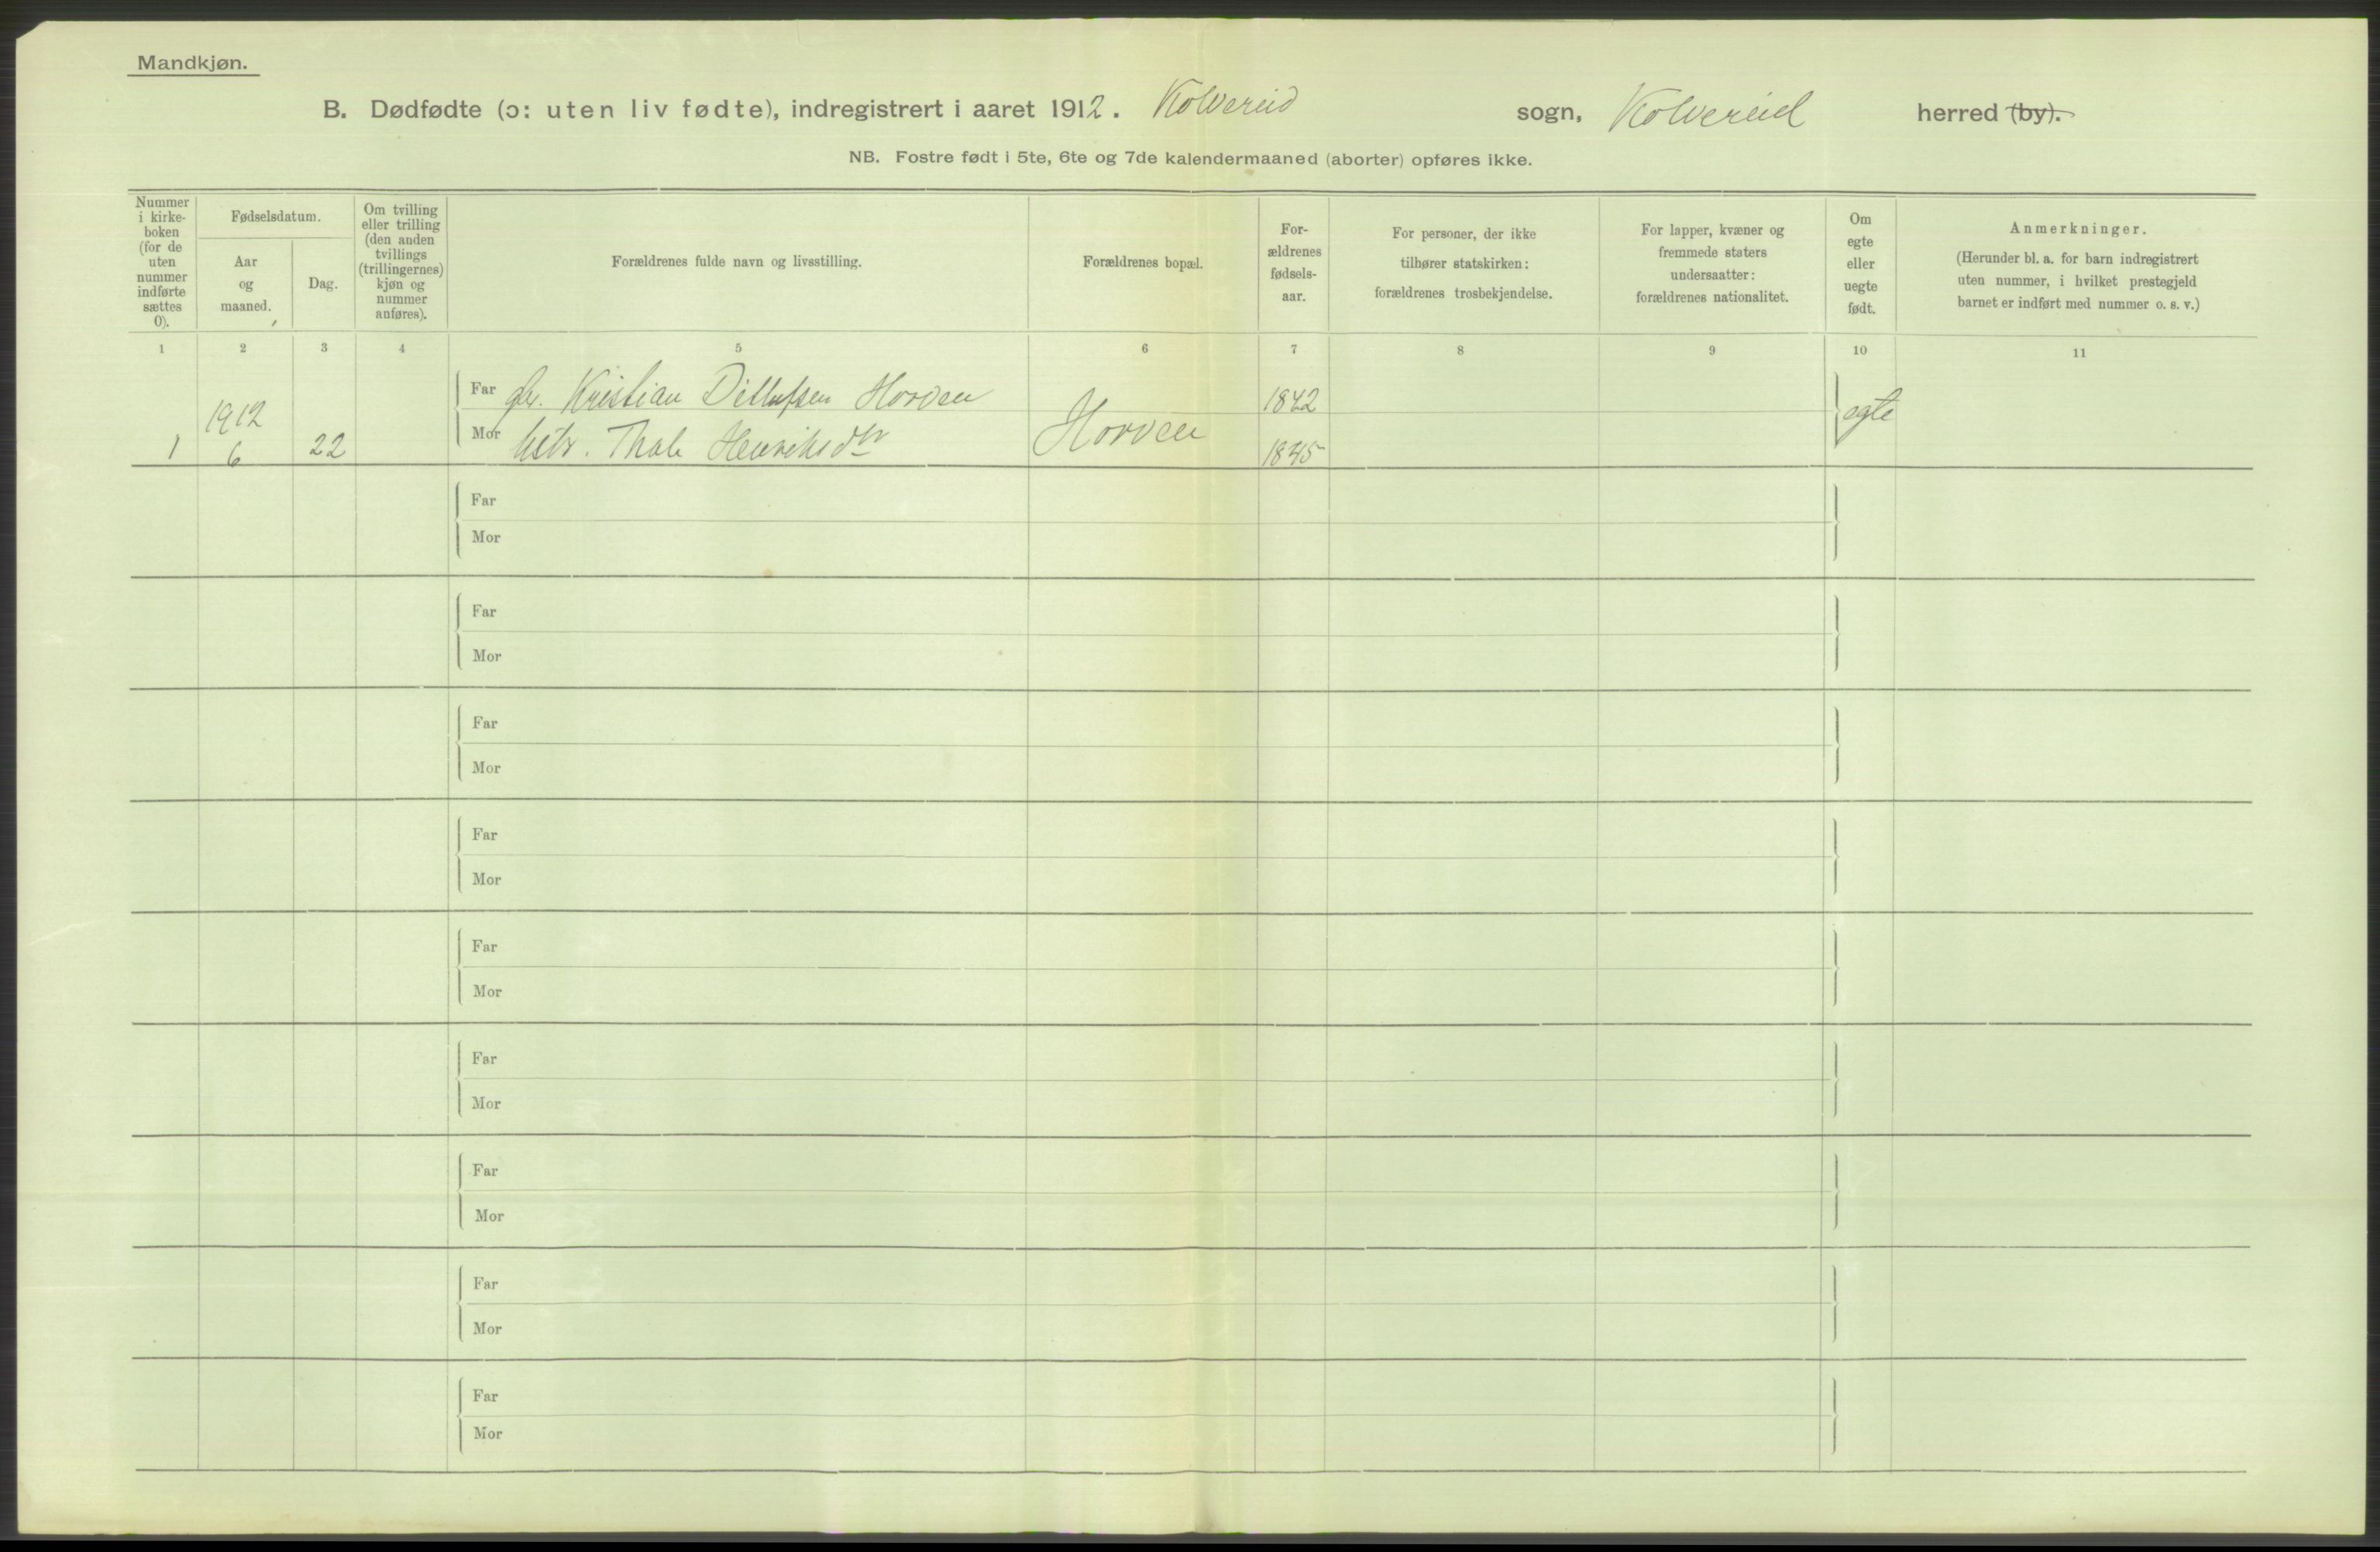 Mandkjøn.
B. Dødfødte (ɔ: uten liv fødte), indregistrert i aaret 1912. Kolvereid sogn, Kolvereid herred (by).
NB. Fostre født i 5te, 6te og 7de kalendermaaned (aborter) opføres ikke.
Nummer
i kirke-
boken
(for de
uten
nummer
indførte
sættes
0).
Fødselsdatum.
Aar
og
maaned.
Dag.
Om tvilling
eller trilling
(den anden
tvillings
(trillingernes)
kjøn og
nummer
anføres).
Forældrenes fulde navn og livsstilling.
Forældrenes bopæl.
For-
ældrenes
fødsels-
aar.
For personer, der ikke
tilhører statskirken:
forældrenes trosbekjendelse.
For lapper, kvæner og
fremmede staters
undersaatter:
forældrenes nationalitet.
Om
egte
eller
uegte
født.
Anmerkninger.
(Herunder bl. a. for barn indregistrert
uten nummer, i hvilket prestegjeld
barnet er indført med nummer o. s. v.)
1 2 3 4 5 6 7 8 9 10 11
Far Kristian Ditlufsen Horven 1842
1912 Horven egte
1 6 22 Mor Hstr. Thale Henriksdtr 1845
Far
Mor
Far
Mor
Far
Mor
Far
Mor
Far
Mor
Far
Mor
Far
Mor
Far
Mor
Far
Mor